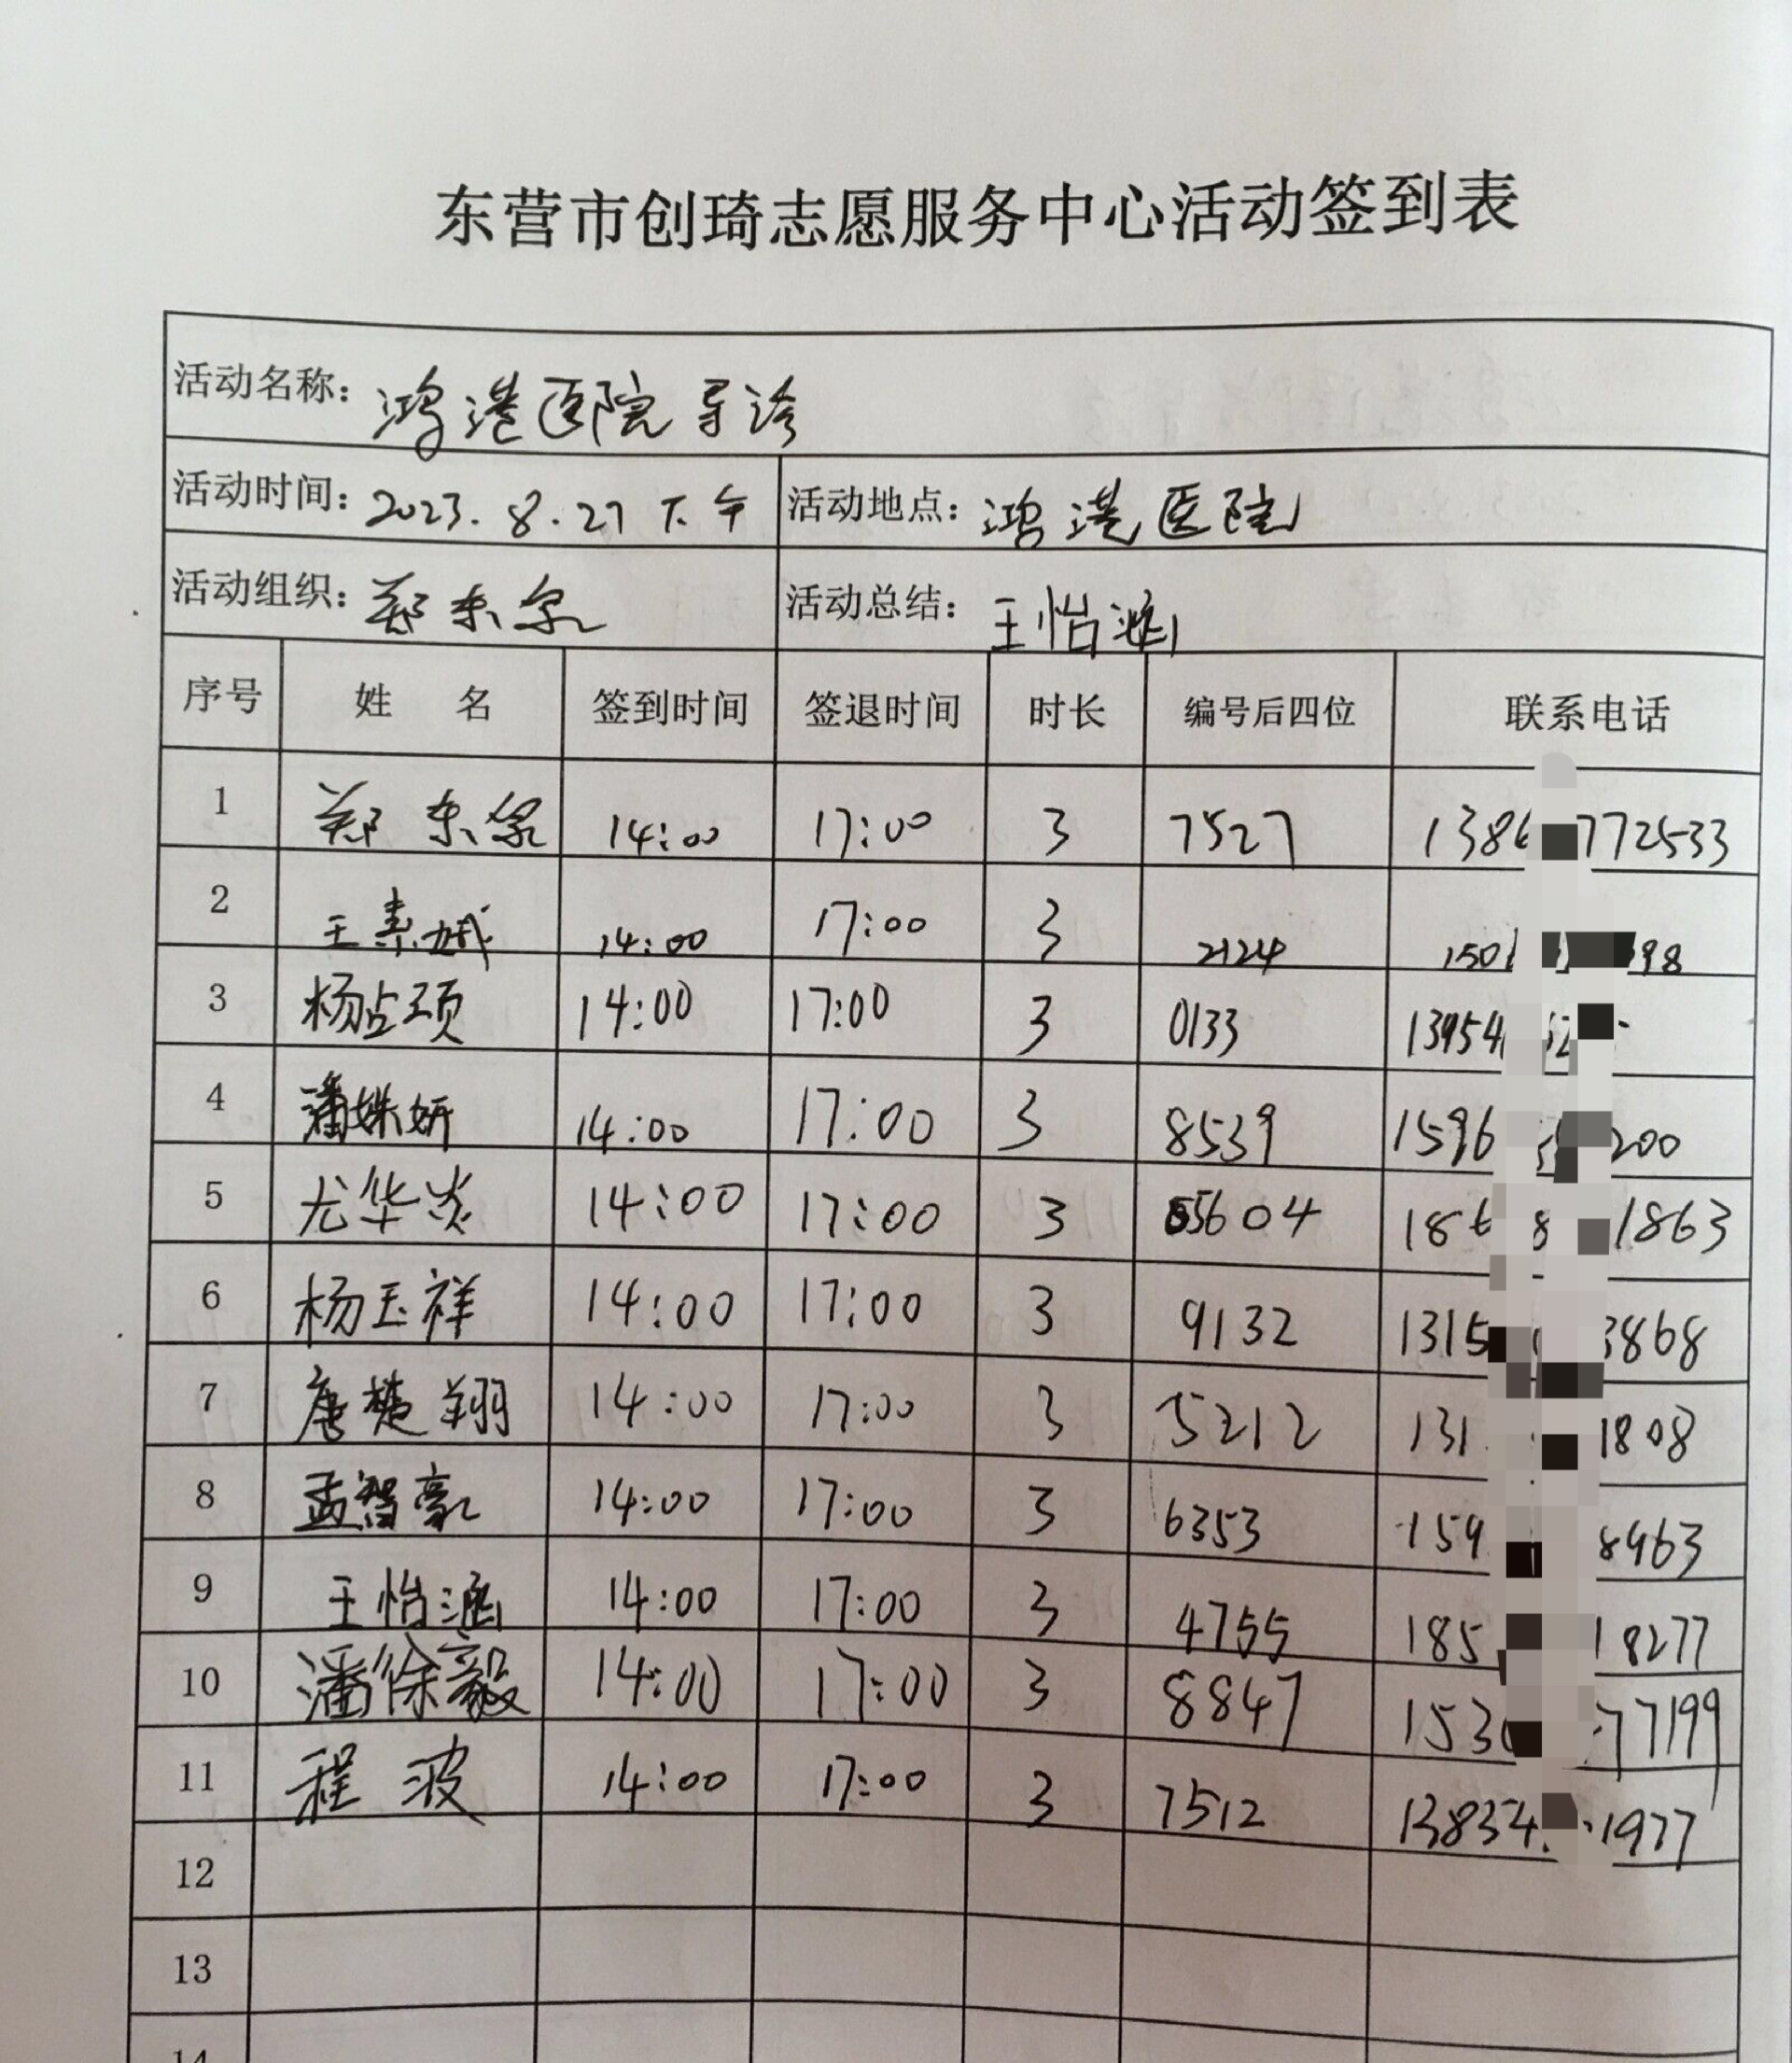 东营市创琦志愿服务中心活动签到表
活动名称：鸿港医院导诊
活动时间：2023.8.27下午 活动地点：鸿港医院
活动组织：郑东泉 活动总结：王怡涵
序号 姓 名 签到时间 签退时间 时长 编号后四位 联系电话
1 郑东泉 14:00 17:00 3 7527 1386 772533
2 王素娥 14:00 17:00 3 2124 150 98
3 杨占顼 14:00 17:00 3 0133 13954
4 潘姝妍 14:00 17:00 3 8539 1596 200
5 尤华炎 14:00 17:00 3 5604 186 8 1863
6 杨玉祥 14:00 17:00 3 9132 1315 3868
7 唐楚翔 14:00 17:00 3 5212 131 1808
8 孟智豪 14:00 17:00 3 6353 159 8963
9 王怡涵 14:00 17:00 3 4755 185 18277
10 潘徐毅 14:00 17:00 3 8847 153 77199
11 程波 14:00 17:00 3 7512 13834 1977
12
13
14